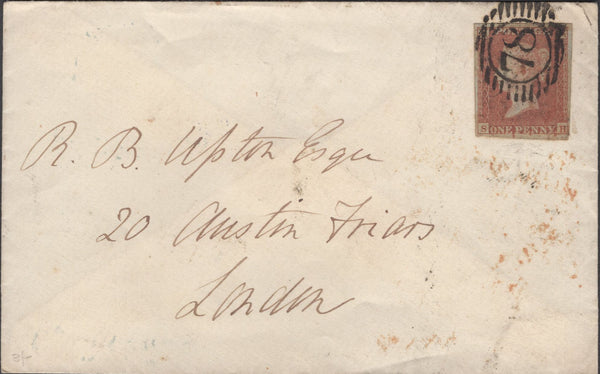 78
S ONE PENNY H
R. B. Upton Esqre
20 Austin Friars
London
3/-